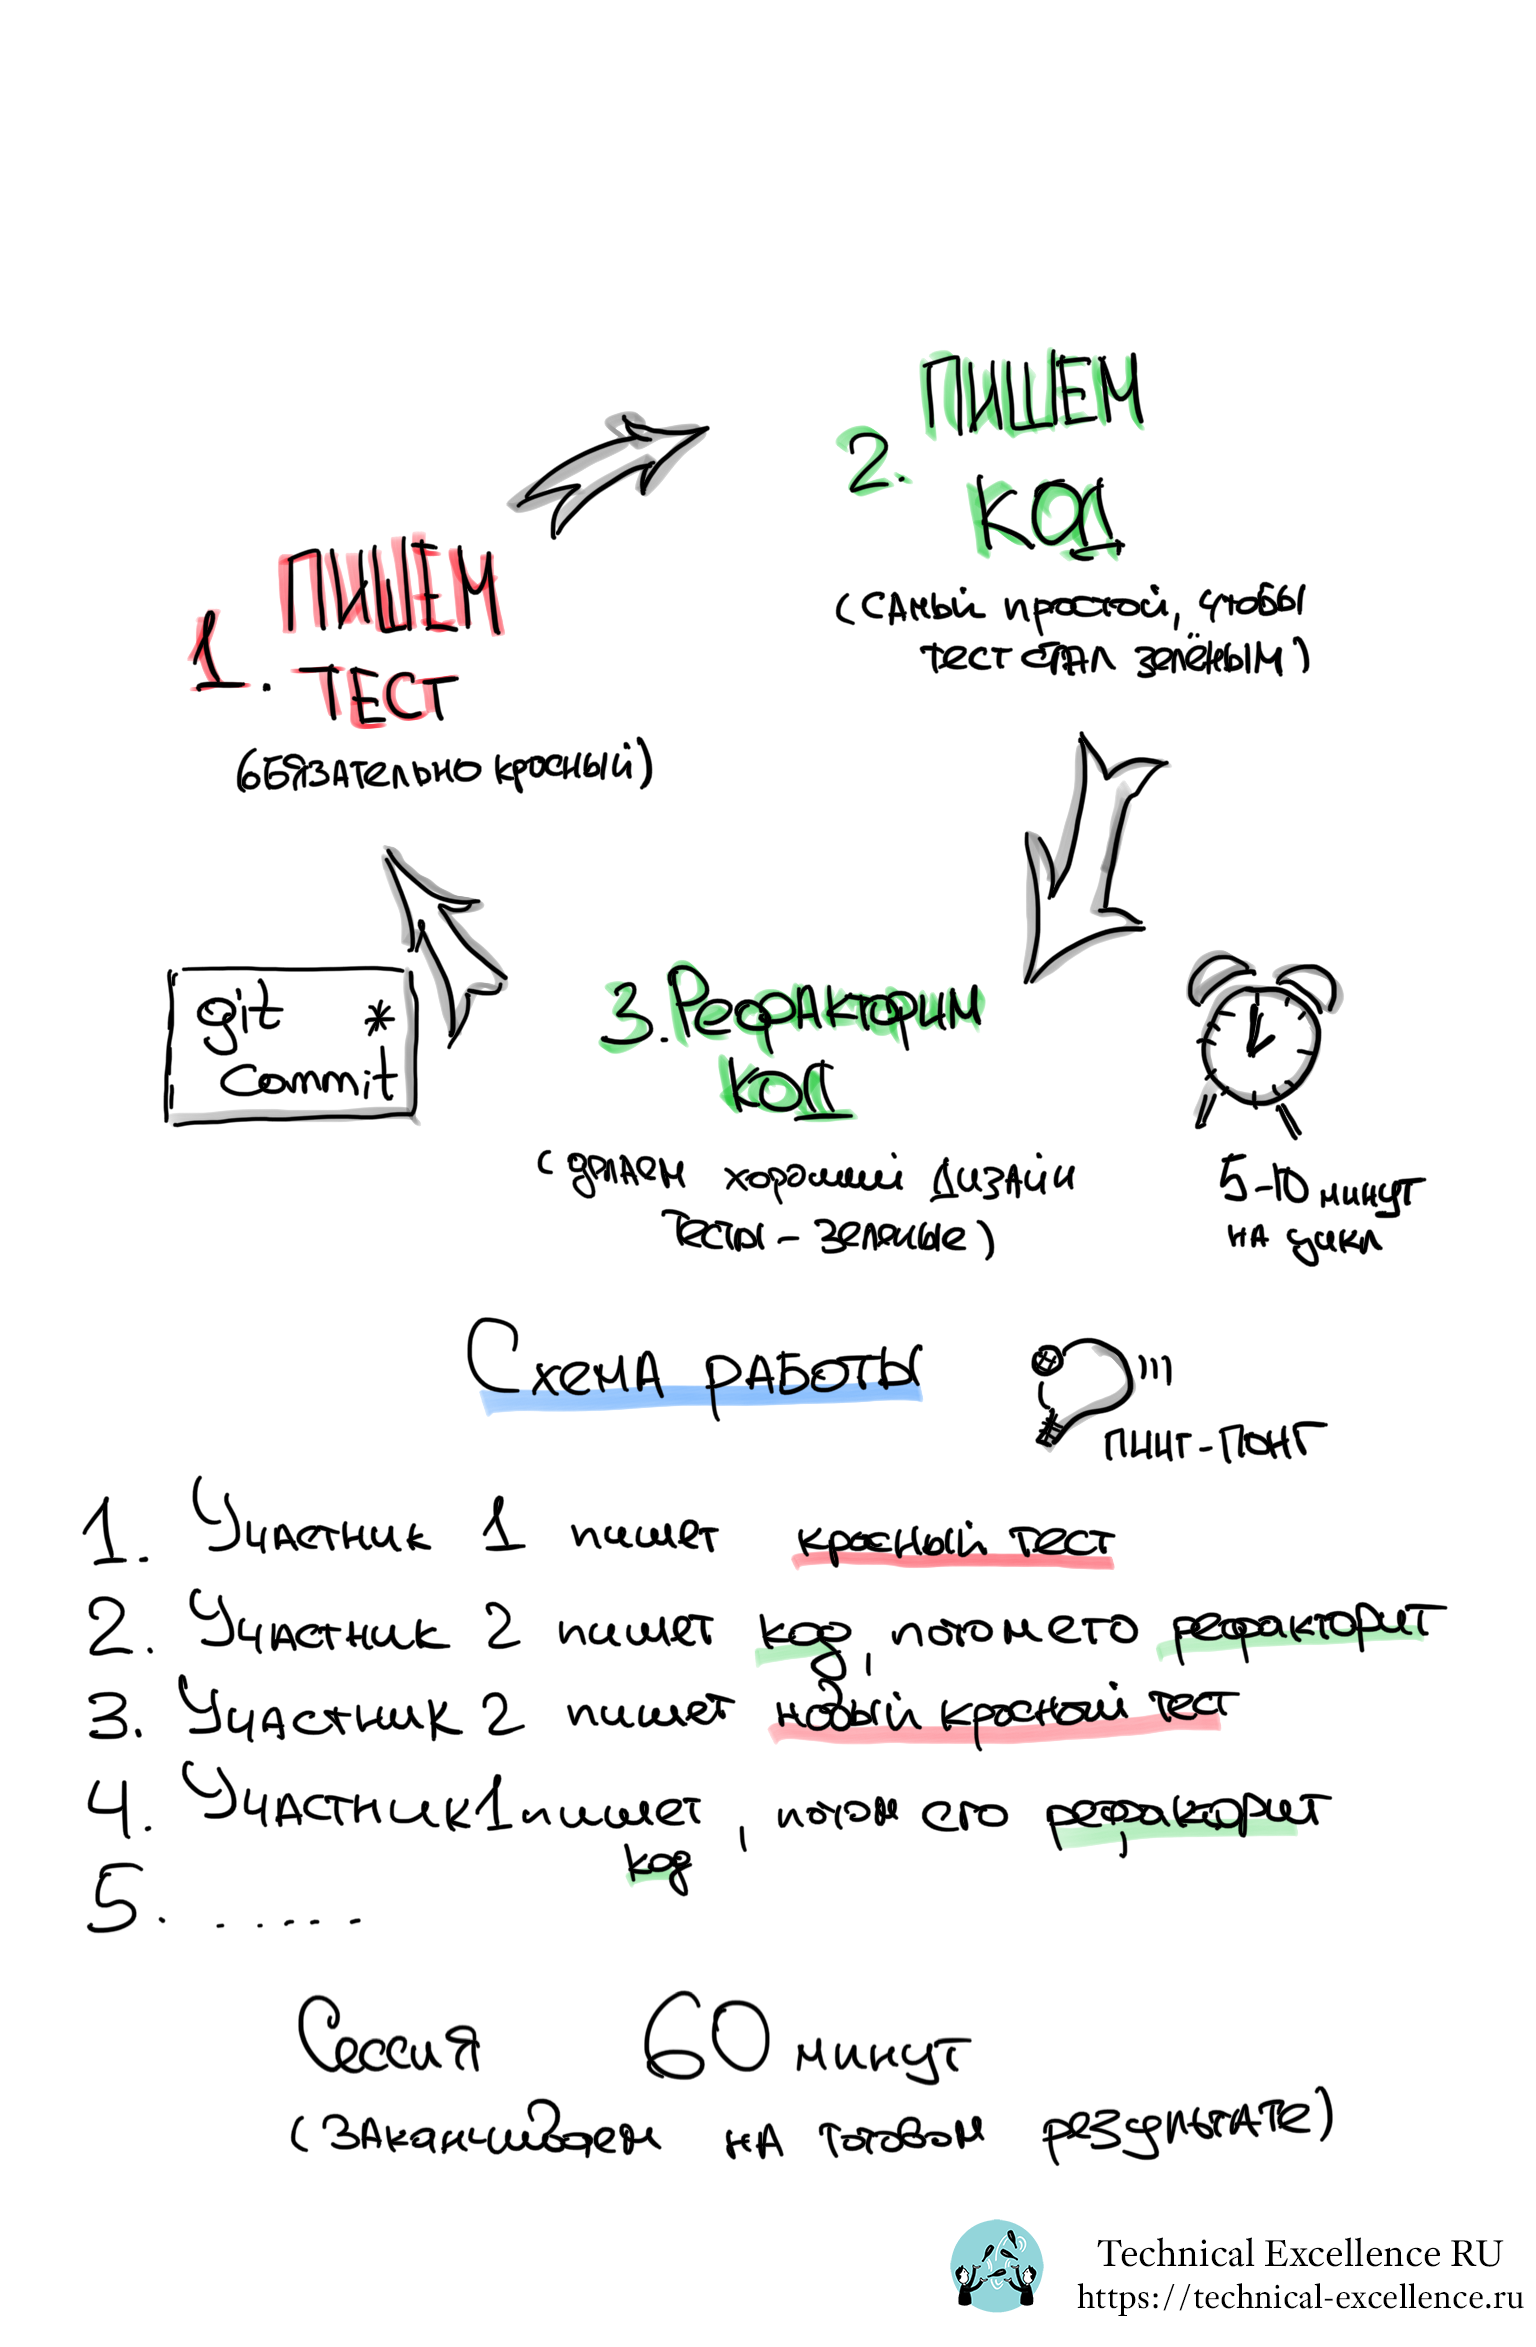 1. ПИШЕМ
ТЕСТ
(ОБЯЗАТЕЛЬНО красный)
2. ПИШЕМ
КОД
(самый простой, чтобы
тест стал зелёным)
3. Рефакторим
код
(делаем хороший дизайн
Тесты - зеленые)
git *
commit
5-10 минут
на цикл
Схема работы
пинг-понг
1. Участник 1 пишет красный тест
2. Участник 2 пишет код, потом его рефакторит
3. Участник 2 пишет новый красный тест
4. Участник 1 пишет код, потом его рефакторит
5. ......
Сессия 60 минут
(заканчиваем на готовом результате)
Technical Excellence RU
https://technical-excellence.ru